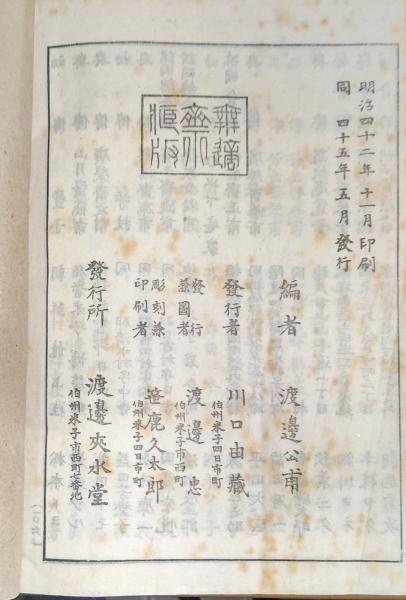 明治四十二年十一月印刷
同 四十五年五月發行
無適
齋
藏版
編者 渡邊公甫
伯州米子四日市町
發行者 川口由藏
伯州米子市西町
發行兼圖者 渡邊忠
伯州米子四日市町
彫刻兼印刷者 笹鹿久太郎
伯州米子市西町七番地
發行所 渡邊夾水堂
(一〇六)